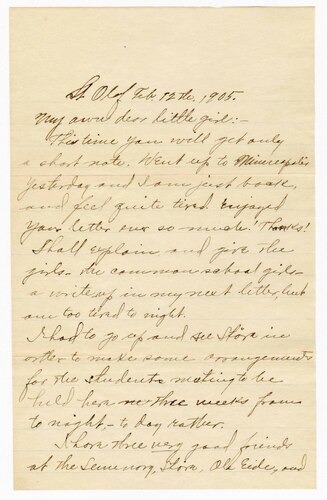 St. Olaf Feb. 12th, 1905.
My own dear little girl:-
This time you will get only
a short note. Went up to Minneapolis
yesterday and I am just back,
and feel quite tired. Enjoyed
your letter ever so much! Thanks!
I shall explain and give the
girls - the common school girls -
a write up in my next letter, but
am too tired to night.
I had to go up and see Störa in
order to make some arrangements
for the students meeting to be
held here three weeks from
to night - to day rather.
I have three very good friends
at the Seminary, Störa, Ole Eide, and